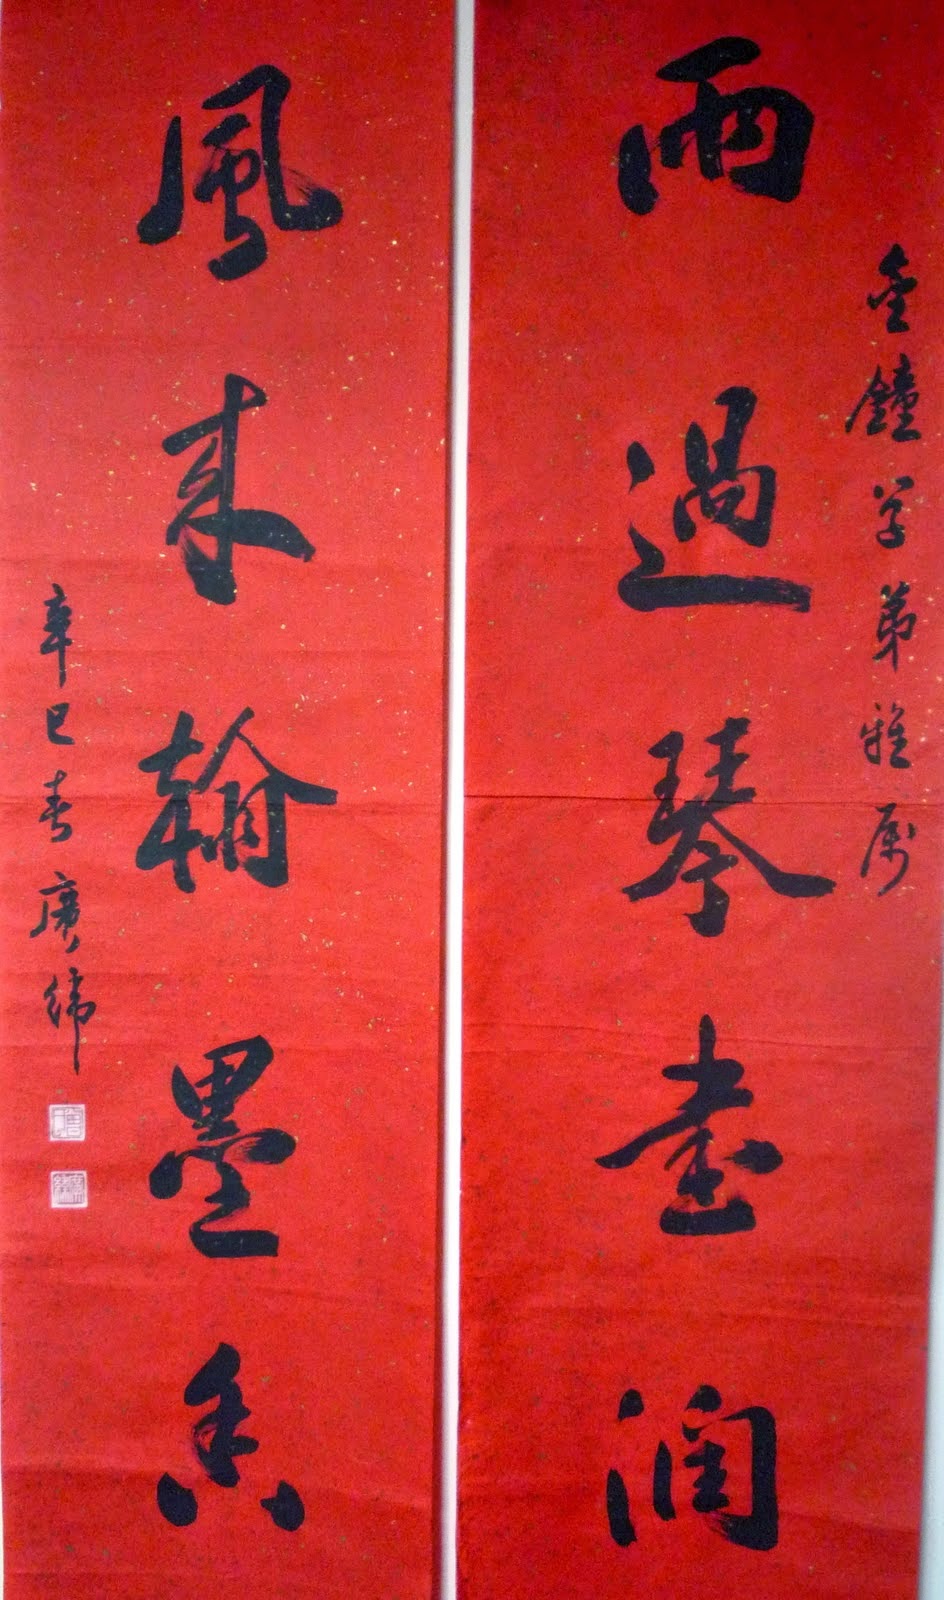 金鐘學弟雅屬
雨過琴書潤
風來翰墨香
辛巳春廣緯